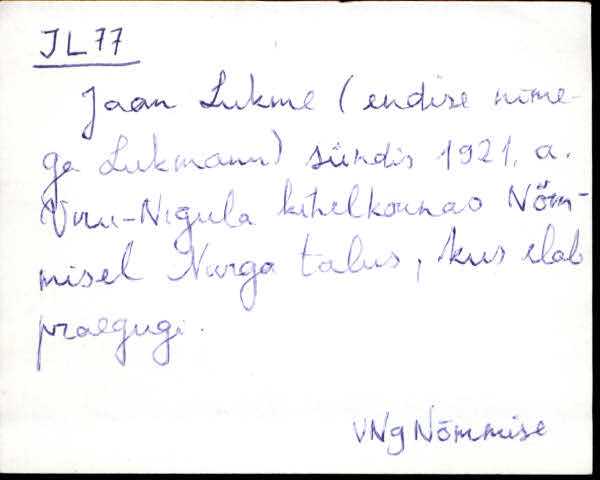 JL 77
Jaan Lukme (endise nime-
ga Lukmann) sündis 1921. a.
Viru-Nigula kihelkonnas Nõm-
misel Nurga talus, kus elab
praegugi.
VNg Nõmmise